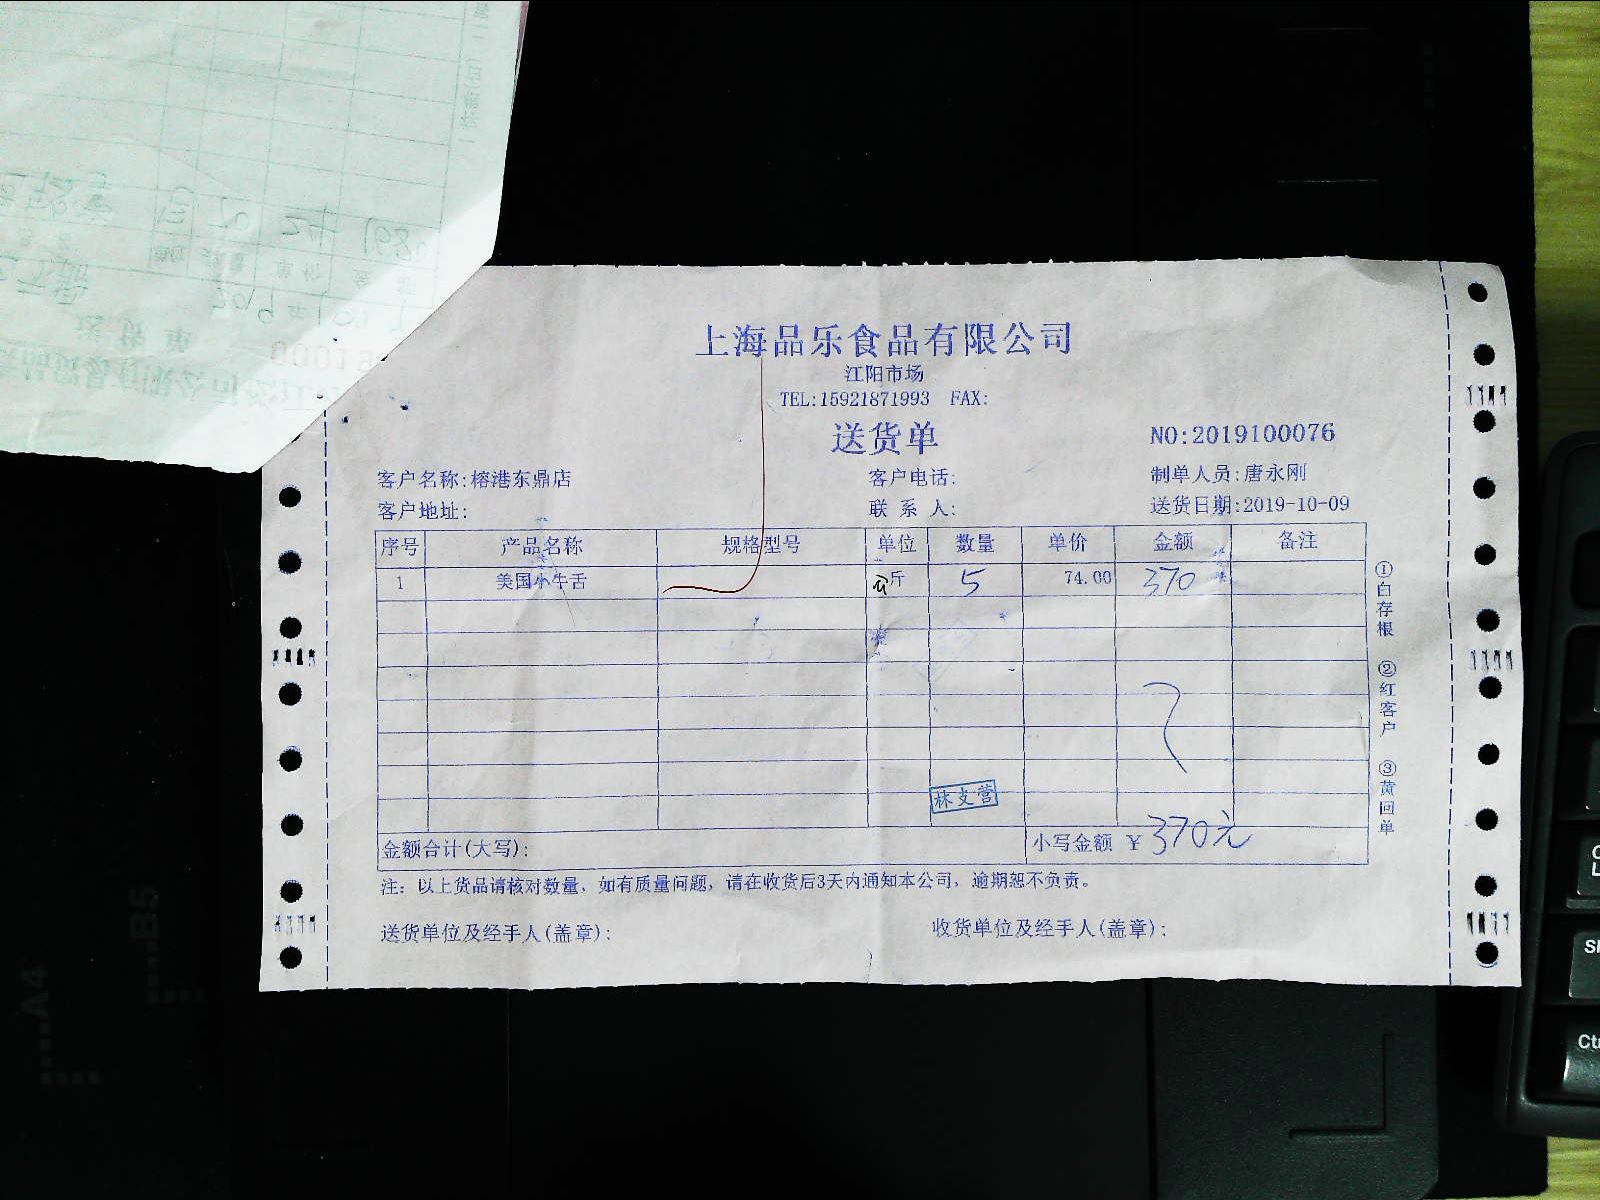 上海品乐食品有限公司
江阳市场
TEL:15921871993 FAX:
送货单
NO:2019100076
客户名称:榕港东鼎店 客户电话: 制单人员:唐永刚
客户地址: 联系人: 送货日期:2019-10-09
序号 产品名称 规格型号 单位 数量 单价 金额 备注
1 美国小牛舌 公斤 5 74.00 370
林支营
金额合计(大写): 小写金额 ¥370元
注: 以上货品请核对数量, 如有质量问题, 请在收货后3天内通知本公司, 逾期恕不负责。
送货单位及经手人(盖章): 收货单位及经手人(盖章):
①白存根 ②红客户 ③黄回单
A4
B5